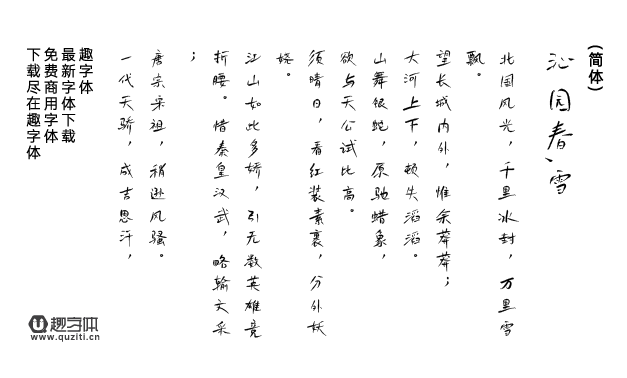 (简体)
沁园春、雪
北国风光，千里冰封，万里雪
飘。
望长城内外，惟余莽莽；
大河上下，顿失滔滔。
山舞银蛇，原驰蜡象，
欲与天公试比高。
须晴日，看红装素裹，分外妖
娆。
江山如此多娇，引无数英雄竞
折腰。惜秦皇汉武，略输文采
；
唐宗宋祖，稍逊风骚。
一代天骄，成吉思汗，
趣字体
最新字体下载
免费商用字体
下载尽在趣字体
趣字体
www.quziti.cn